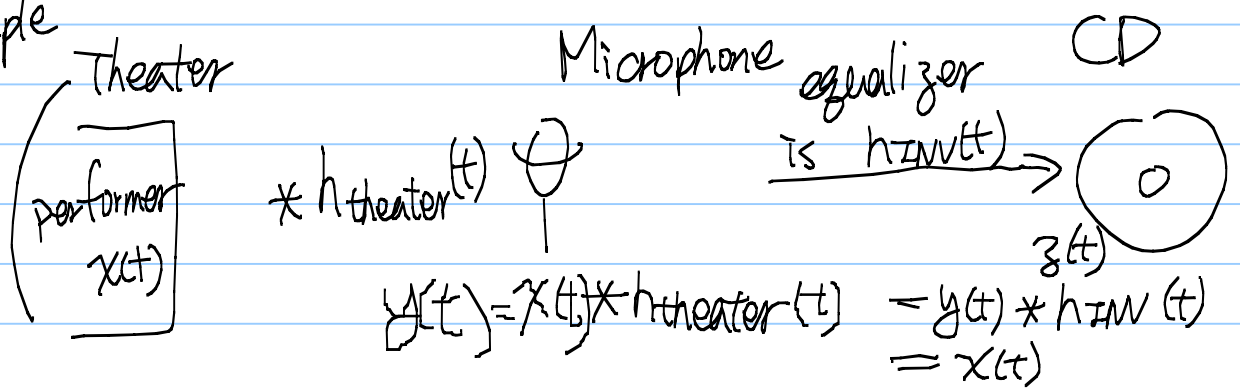 ple
Theater
Microphone
CD
equalizer
is hINV(t)
performer
x(t)
* htheater(t)
z(t)
y(t) = x(t) * htheater(t)
= y(t) * hINV(t)
= x(t)